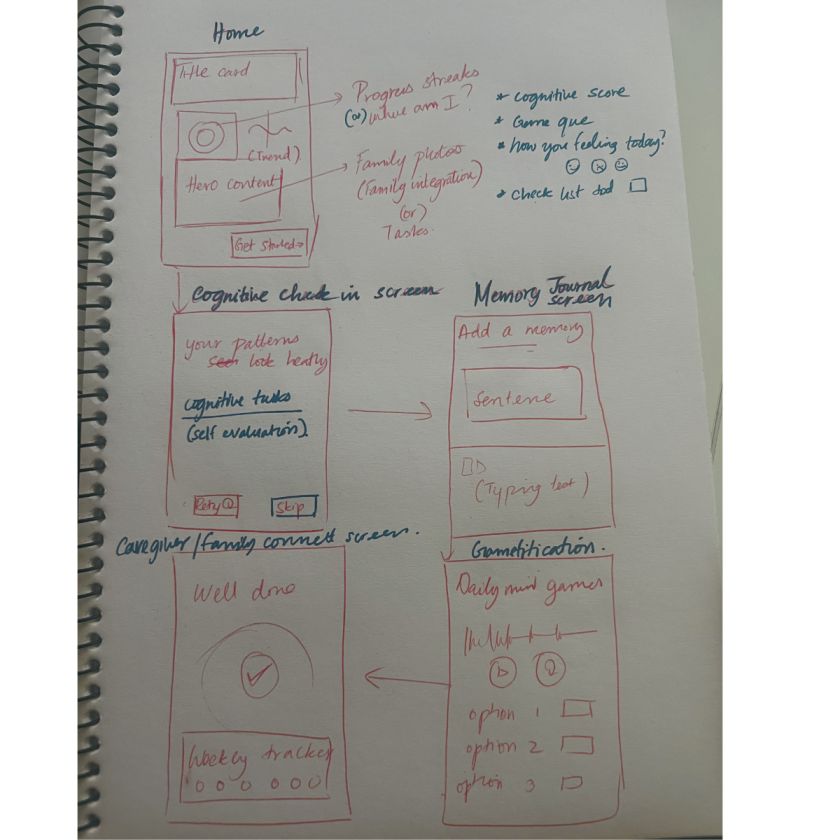 Home
Title card
Progress streaks
(or) where am I?
(Trend)
Hero content
Family photos
(Family integration)
(or)
Tasks.
Get Started→
* cognitive score
* Game que
* how you feeling today?
* check list
Cognitive check in screen
your patterns
look
cognitive tasks
(self evaluation).
Skip
Memory Journal
screen
Add a memory
Sentence
(Typing test)
Caregiver/family connect screen.
Well done
Weekly tracker
Gametification.
Daily mini games
option 1
option 2
option 3